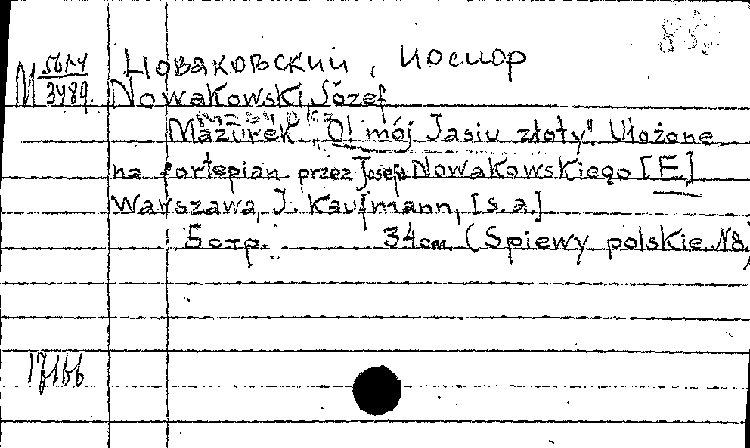 Новаковский, Иосиф
М 5674/3489 Nowakowski, Józef
Mazurek "O! mój Jasiu złoty". Ułożone
na fortepian przez Josefa Nowakowskiego [E.]
Warszawa, J. Kaufmann, [s.a.]
5 стр. 34 см. (Spiewy polskie. №8)
17166